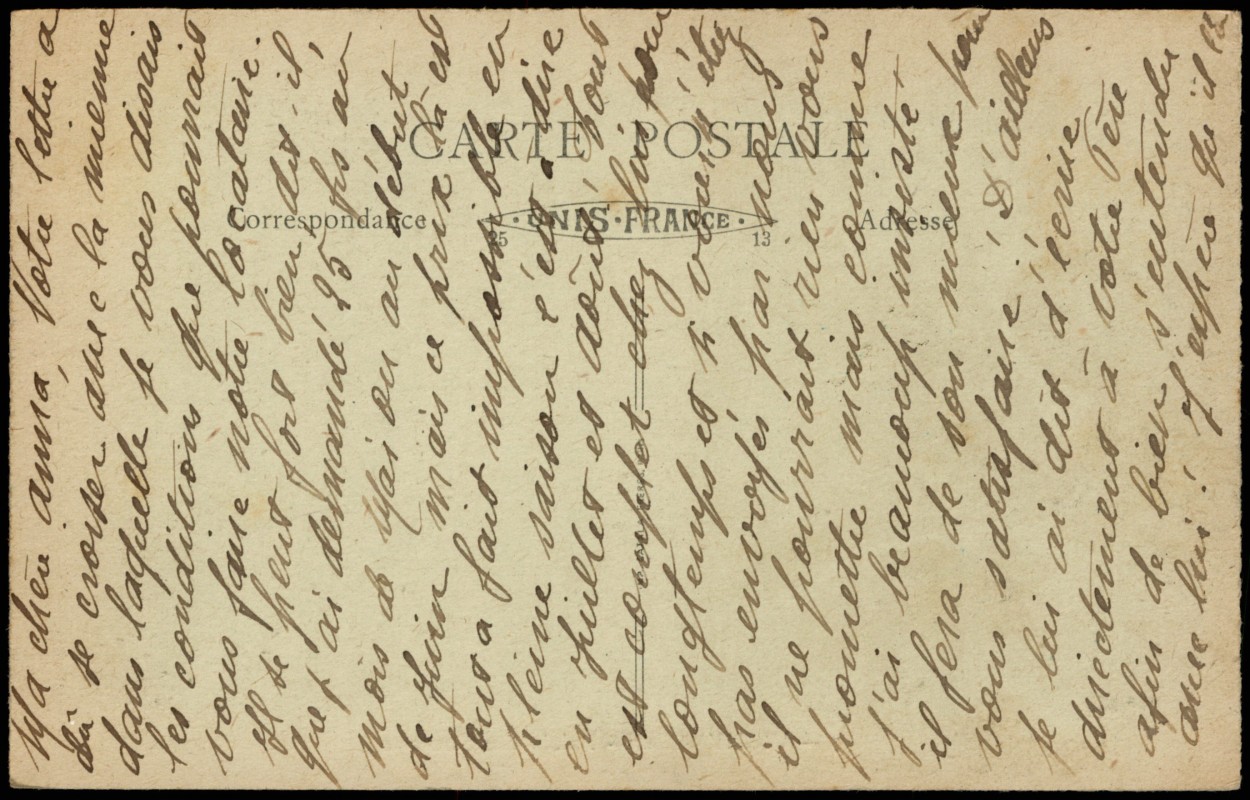 CARTE POSTALE
Correspondance
UNIS-FRANCE
Adresse
25
13
Ma chère amie, Votre lettre a
dû se croiser avec la mienne
dans laquelle je vous disais
les conditions que pourrait
vous faire notre locataire.
Il se peut fort bien dit-il
que j'ai demandé 25 frs au
mois de Mai ou au début
de Juin mais ce prix là est
tout a fait impossible en
pleine saison c'est à dire
en juillet et août. Tout
est complet chez lui pour
longtemps et si vous n'étiez
pas envoyés par nous
il ne pourrait rien vous
promettre mais comme
j'ai beaucoup insisté
il fera de son mieux pour
vous satisfaire. D'ailleurs
je lui ai dit d'écrire
directement à votre Père
afin de bien s'entendre
avec lui. J'espère qu'il